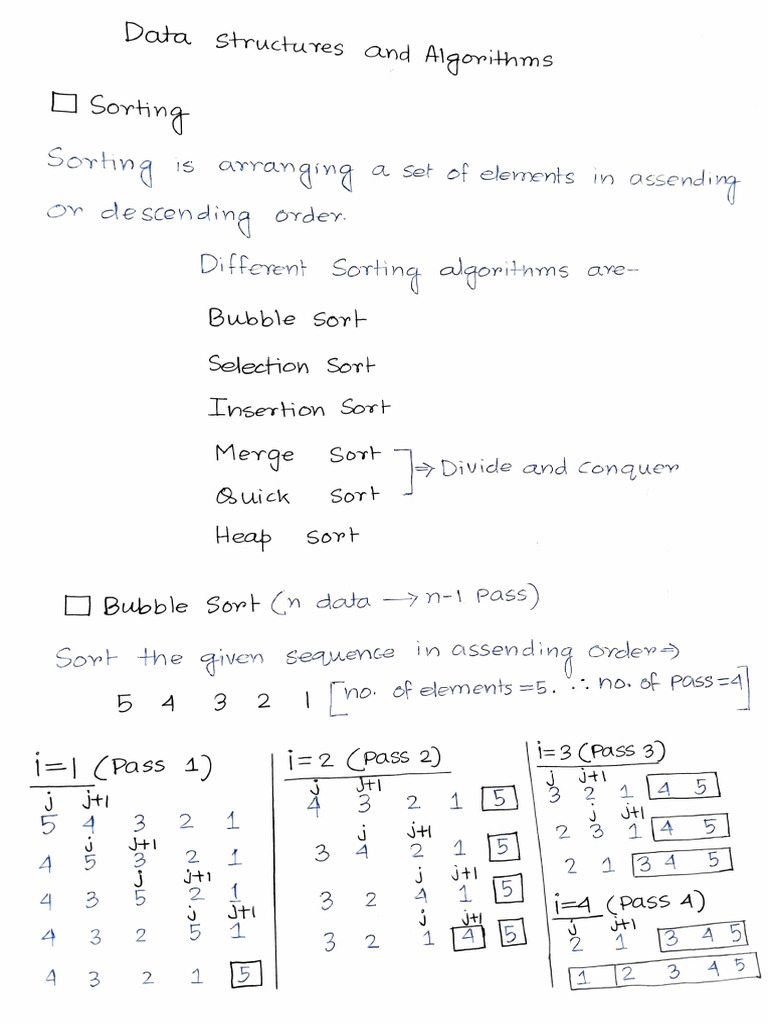 Data structures and Algorithms
Sorting
Sorting is arranging a set of elements in assending
or descending order.
Different Sorting algorithms are-
Bubble sort
Selection Sort
Insertion Sort
Merge Sort
⇒ Divide and conquer
Quick sort
Heap sort
Bubble sort (n data → n-1 pass)
Sort the given sequence in assending order⇒
5 4 3 2 1 [no. of elements=5. ∴ no. of pass=4]
i=1 (Pass 1)
j j+1
5 4 3 2 1
j j+1
4 5 3 2 1
j j+1
4 3 5 2 1
j j+1
4 3 2 5 1
4 3 2 1 5
i=2 (Pass 2)
j j+1
4 3 2 1 5
j j+1
3 4 2 1 5
j j+1
3 2 4 1 5
j j+1
3 2 1 4 5
i=3 (Pass 3)
j j+1
3 2 1 4 5
j j+1
2 3 1 4 5
2 1 3 4 5
i=4 (Pass 4)
j j+1
2 1 3 4 5
1 2 3 4 5